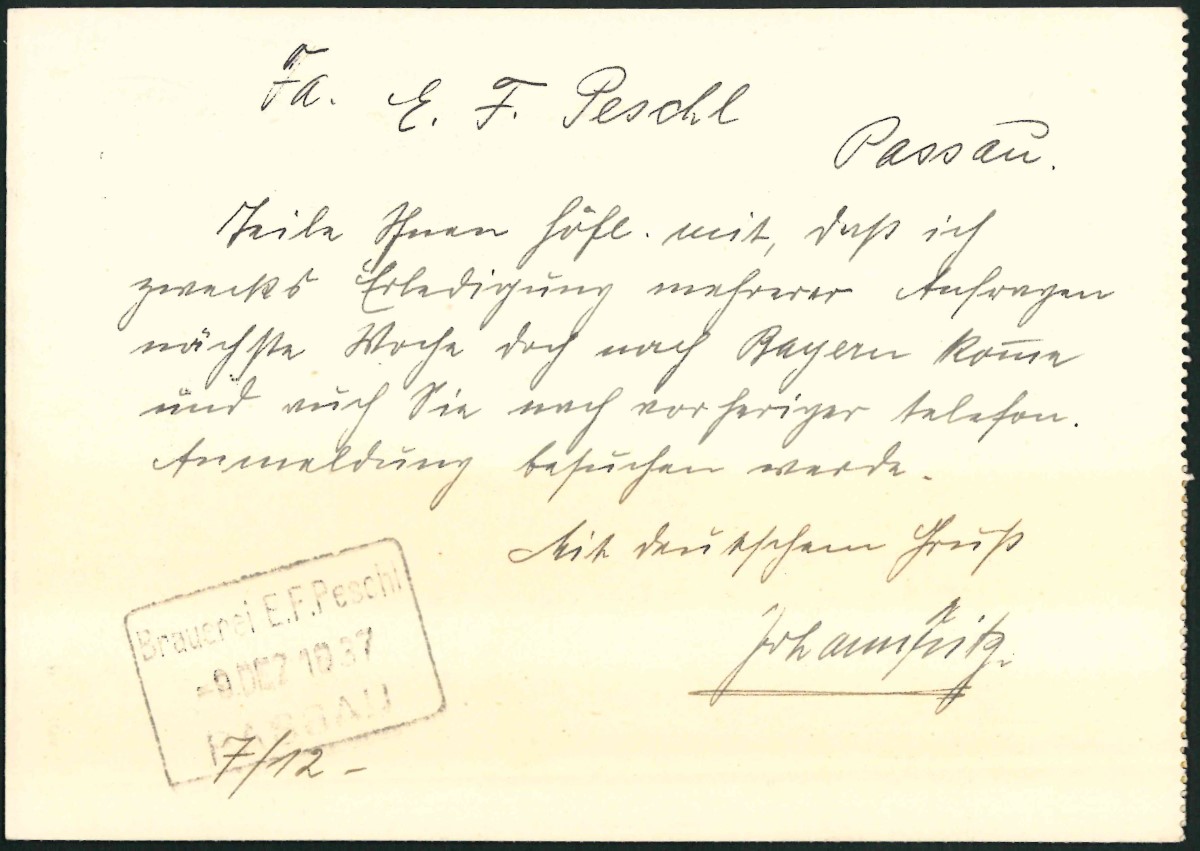 Fa. E. F. Peschl
Passau.
Teile Ihnen höfl. mit, daß ich
zwecks Erledigung mehrerer Anfragen
nächste Woche doch nach Bayern kom̄e
und auch Sie nach vorheriger telefon.
Anmeldung besuchen werde.
Mit deutschem Gruß
Johann Fritz.
Brauerei E.F. Peschl
-9. DEZ 1937
PASSAU
7/12 -